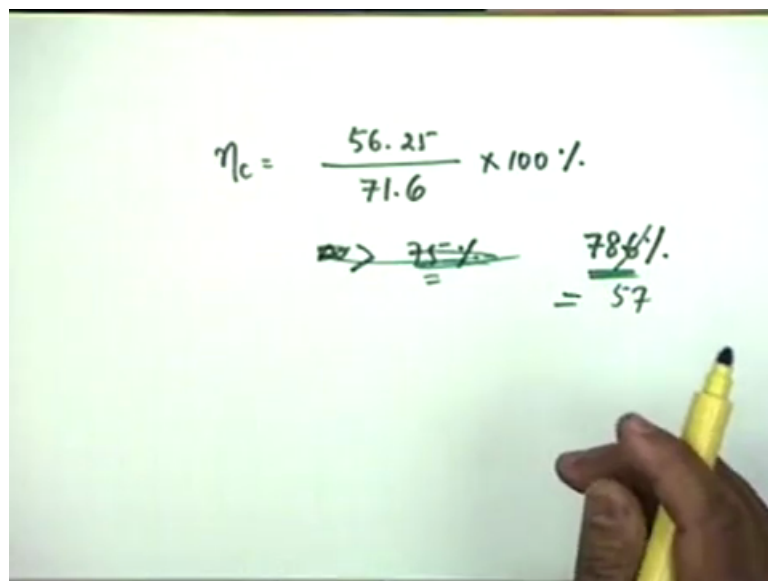 ηc = 56.25 / 71.6 × 100 %
> 75 %
=
78 %
= 57